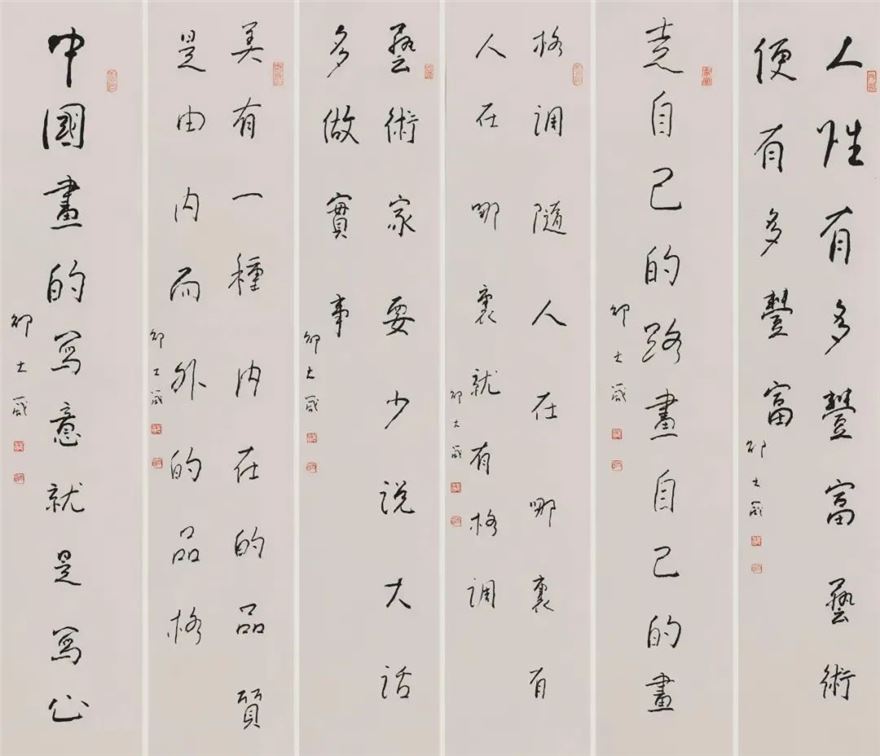 人性有多豐富藝術
便有多豐富
邵大箴
走自己的路畫自己的畫
邵大箴
格调隨人在哪裏有
人在哪裏就有格调
邵大箴
藝術家要少说大话
多做實事
邵大箴
美有一種内在的品質
是由内而外的品格
邵大箴
中國畫的寫意就是寫心
邵大箴